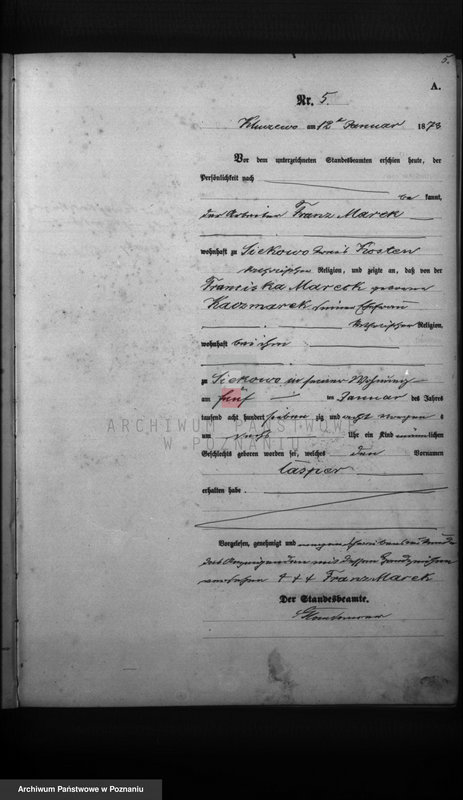 5.
A.
Nr. 5.
Kluczewo am 12ten Januar 1878
Vor dem unterzeichneten Standesbeamten erschien heute, der
Persönlichkeit nach
be kannt,
der Arbeiter Franz Marek
wohnhaft zu Siekowo Kreis Kosten
katholischer Religion, und zeigte an, daß von der
Franziska Mareck geborene
Kaczmarek seiner Ehefrau
katholischer Religion,
wohnhaft bei ihm
zu Siekowo in seiner Wohnung
am fünf ten Januar des Jahres
tausend acht hundert sieben zig und acht Morgens
um sechs Uhr ein Kind männlichen
Geschlechts geboren worden sei, welches den Vornamen
Casper
erhalten habe.
Vorgelesen, genehmigt und wegen Schreibensunkunde
des Anzeigenden mit dessen Handzeichen
versehen + + + Franz Marek
Der Standesbeamte.
ARCHIWUM PAŃSTWOWE
W POZNANIU
Archiwum Państwowe w Poznaniu